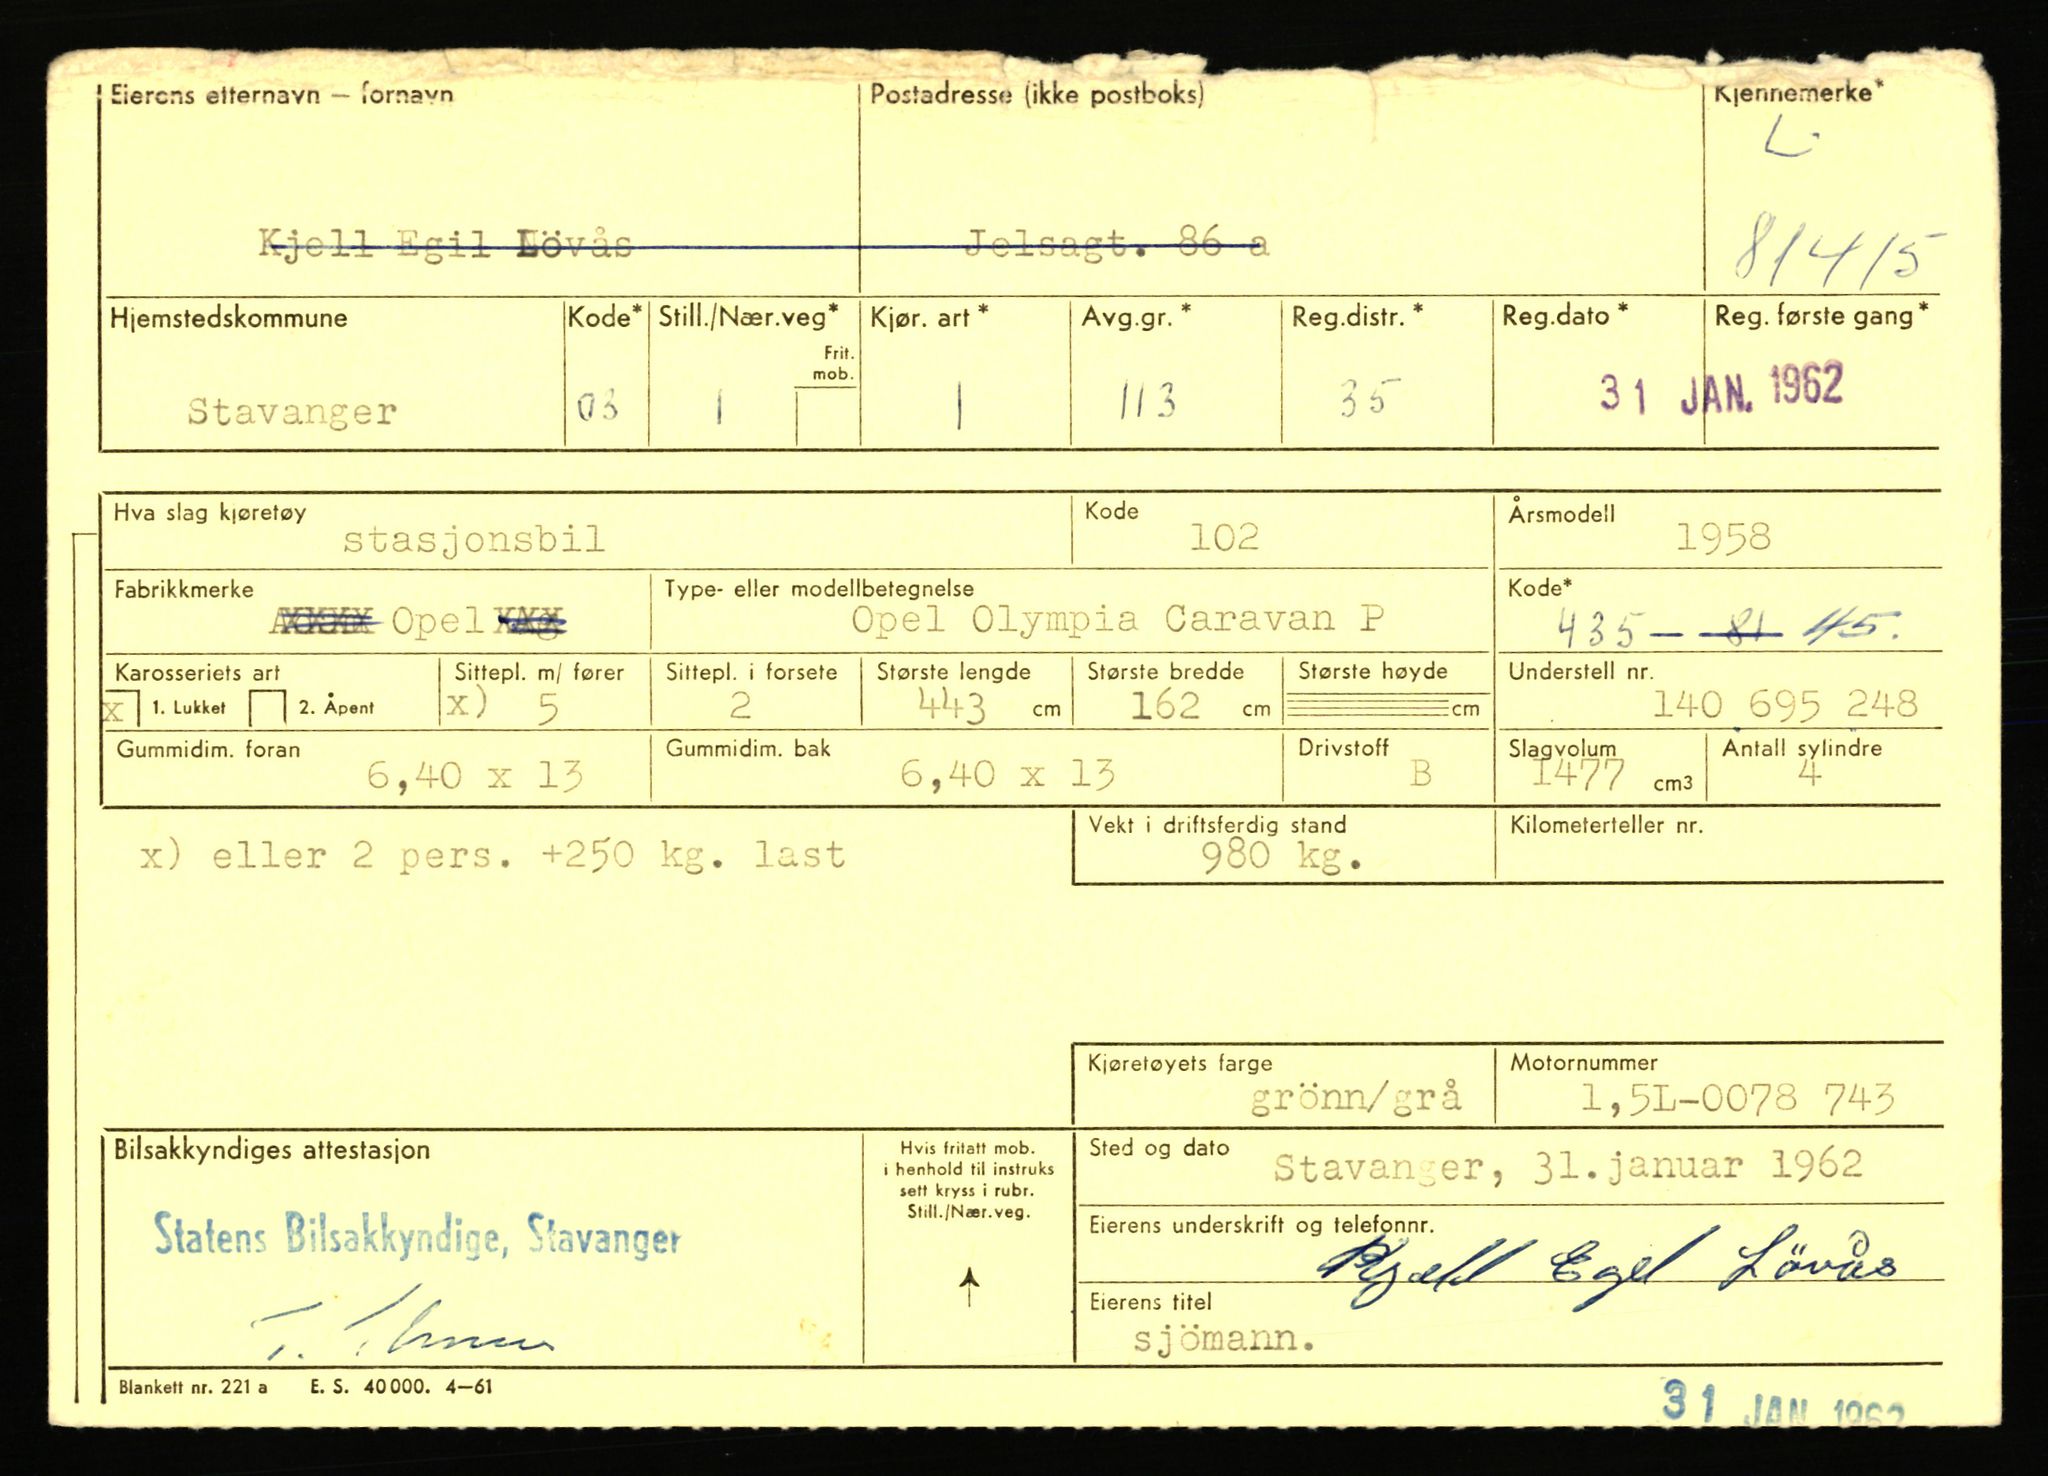 Eierens etternavn – fornavn Postadresse (ikke postboks) Kjennemerke*
L
Kjell Egil Lövås Jelsagt. 86 a 81415
Hjemstedskommune Kode* Still./Nær.veg* Kjør. art* Avg.gr.* Reg.distr.* Reg.dato* Reg. første gang*
Frit.
mob.
Stavanger 03 1 1 113 35 31 JAN. 1962
Hva slag kjøretøy Kode Årsmodell
stasjonsbil 102 1958
Fabrikkmerke Type- eller modellbetegnelse Kode*
Opel Opel Olympia Caravan P 435 – 81 45.
Karosseriets art Sittepl. m/ fører Sittepl. i forsete Største lengde Største bredde Største høyde Understell nr.
x 1. Lukket 2. Åpent x) 5 2 443 cm 162 cm cm 140 695 248
Gummidim. foran Gummidim. bak Drivstoff Slagvolum Antall sylindre
6,40 x 13 6,40 x 13 B 1477 cm3 4
Vekt i driftsferdig stand Kilometerteller nr.
x) eller 2 pers. +250 kg. last 980 kg.
Kjøretøyets farge Motornummer
grönn/grå 1,5L-0078 743
Bilsakkyndiges attestasjon
Hvis fritatt mob.
i henhold til instruks
sett kryss i rubr.
Still./Nær.veg.
Sted og dato
Stavanger, 31.januar 1962
Statens Bilsakkyndige, Stavanger
Eierens underskrift og telefonnr.
Kjell Egil Lövås
Eierens titel
sjömann.
Blankett nr. 221 a E. S. 40000. 4–61
31 JAN 1962